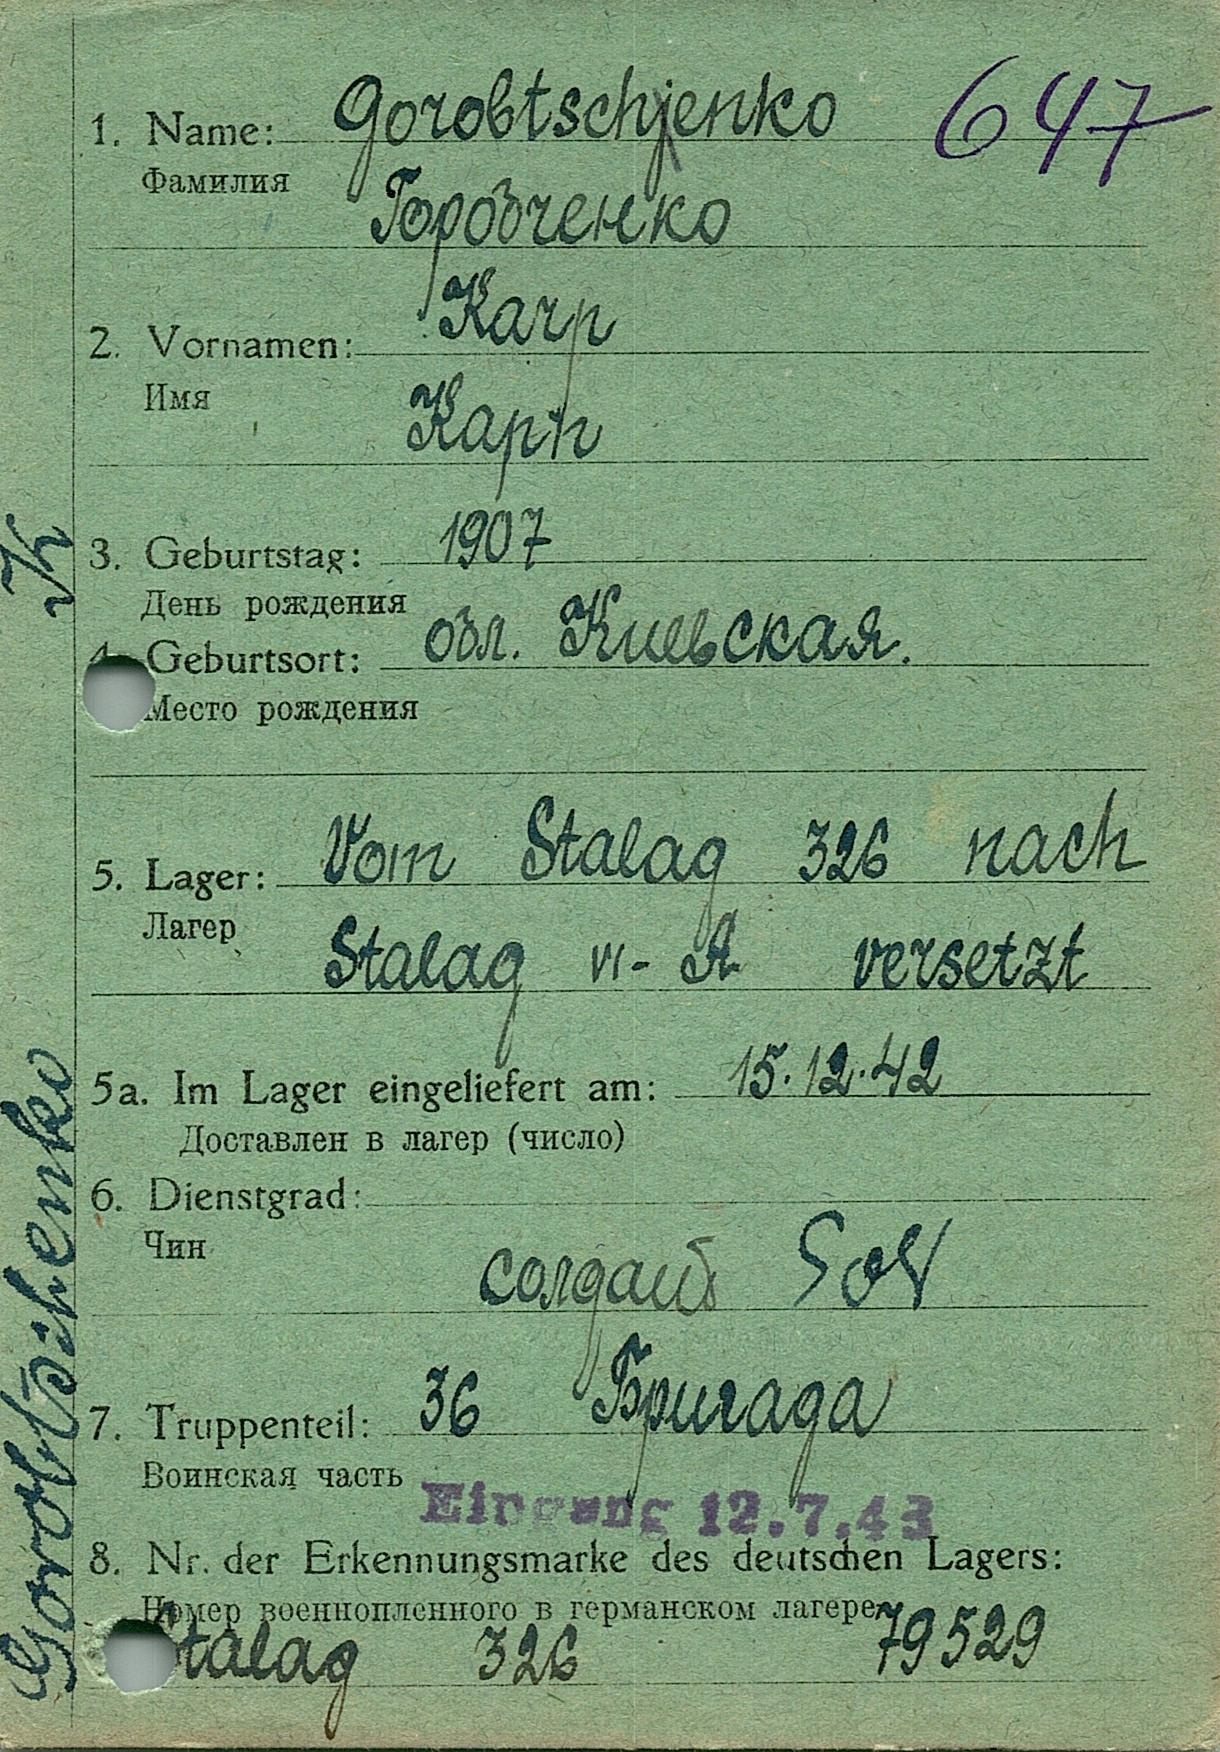 647
1. Name: Gorobtschjenko
Фамилия
Горобченко
2. Vornamen: Karp
Имя
Карп
3. Geburtstag: 1907
День рождения
4. Geburtsort: обл. Киевская.
Место рождения
5. Lager: Vom Stalag 326 nach
Лагер
Stalag VI-A versetzt
5a. Im Lager eingeliefert am: 15.12.42
Доставлен в лагер (число)
6. Dienstgrad:
Чин
солдат Sol
7. Truppenteil: 36 Бригада
Воинская часть
Eingang 12.7.43
8. Nr. der Erkennungsmarke des deutschen Lagers:
Номер военнопленного в германском лагере
Stalag 326 79529
Gorobtschenko K